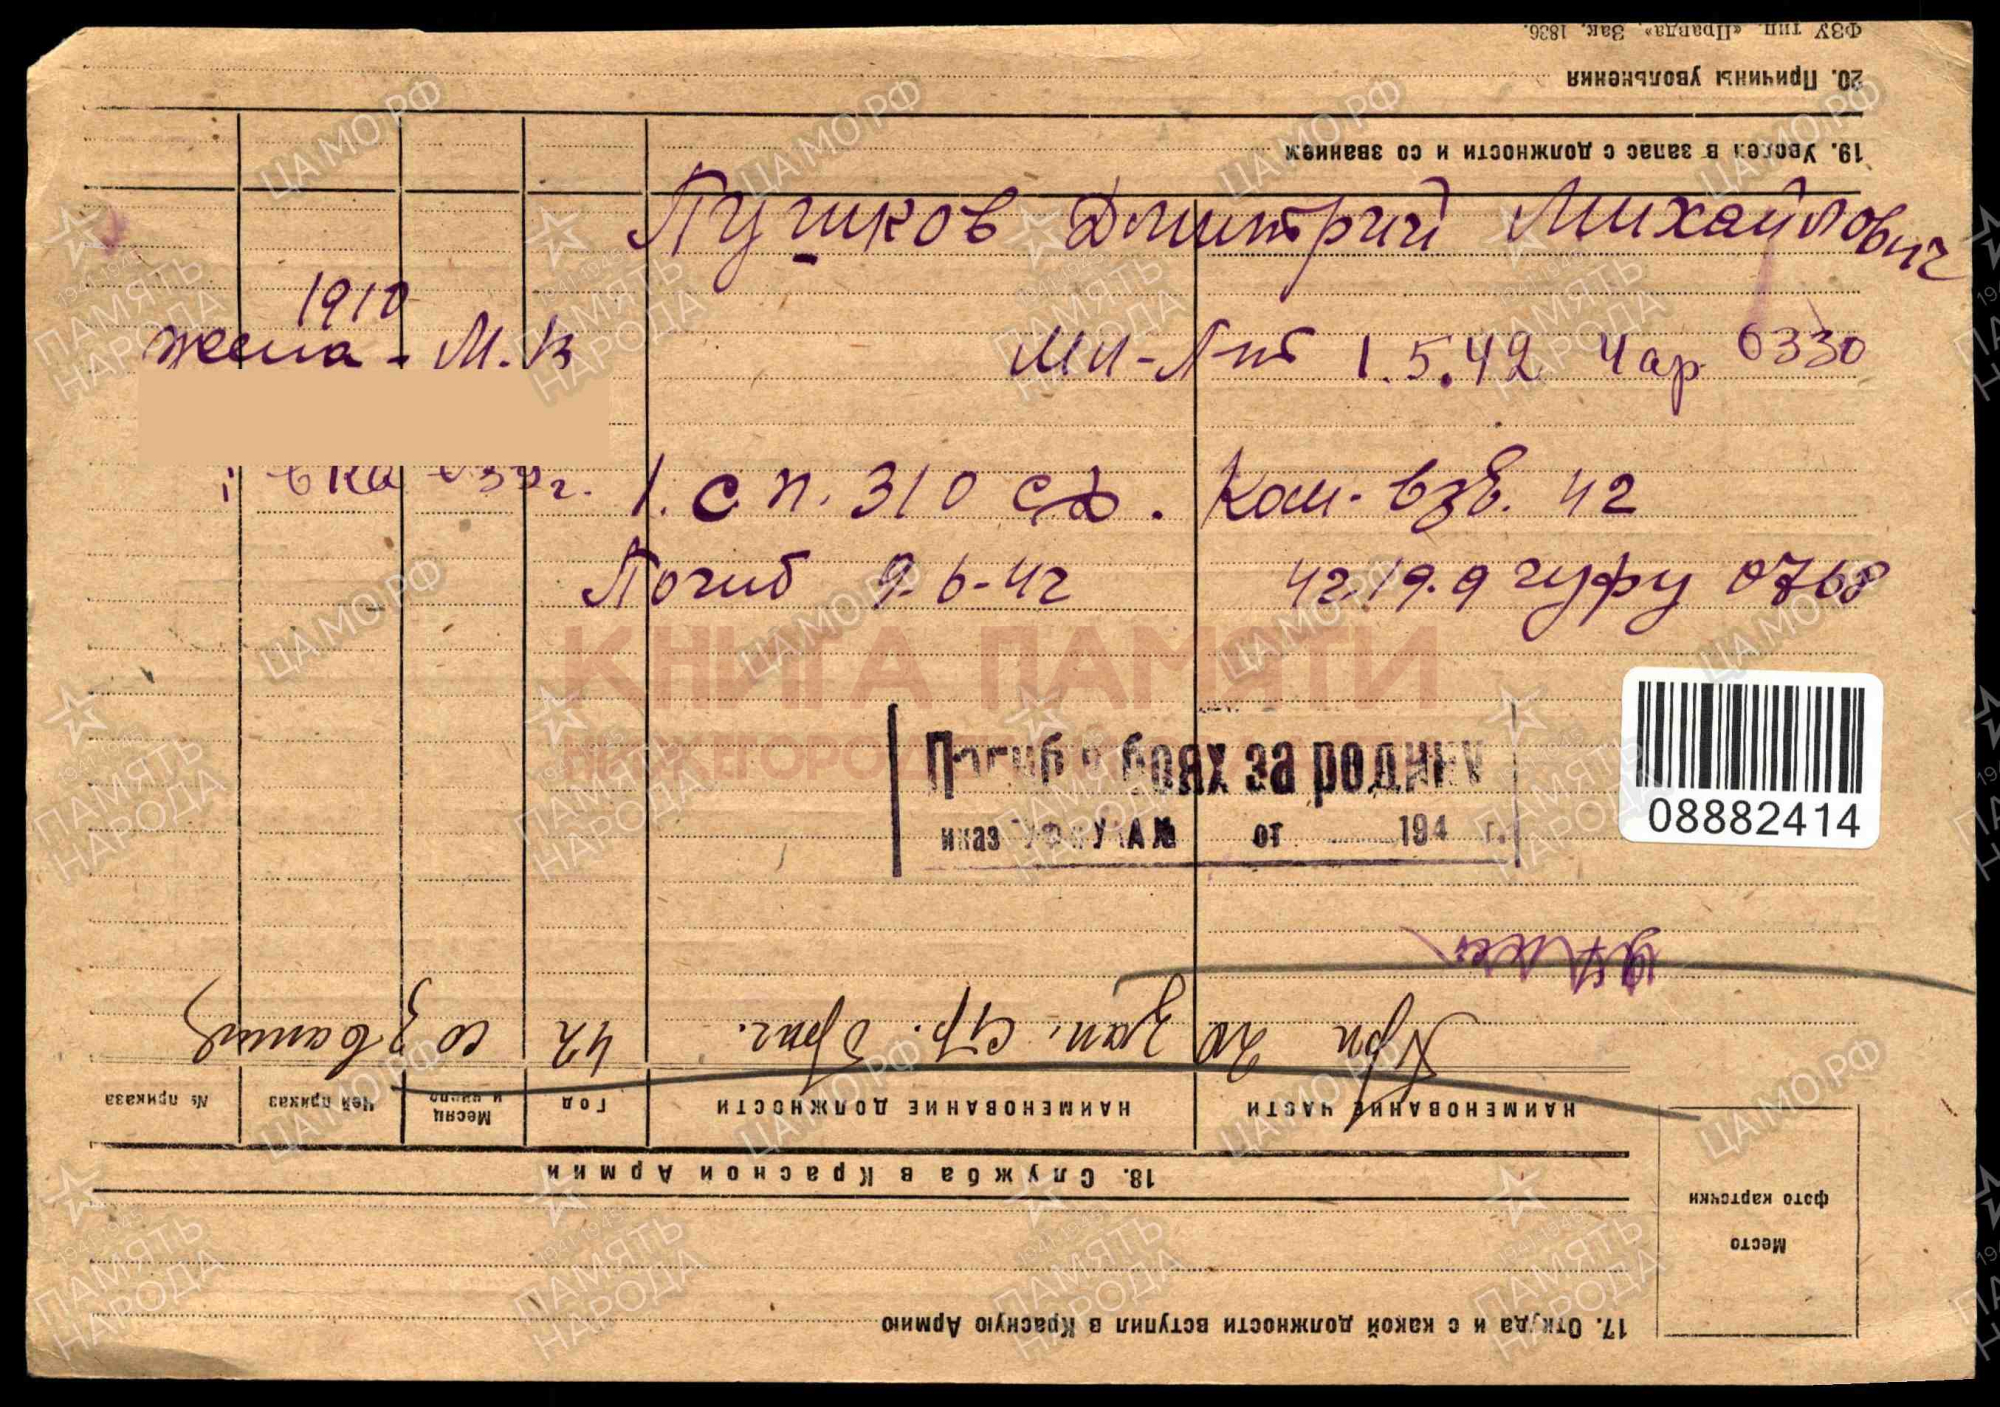 ФЗУ тип. «Правда», Зак. 1836.
20. Причины увольнения
19. Уволен в запас с должности и со званием
Пушков Дмитрий Михайлович
1910
жена - М. В
Мл-л-нт 1.5.42 Чар 0330
1. сп. 310 сд. Ком-взв. 42
Погиб 9-6-42 42.19.9 гуфу 0768
КНИГА ПАМЯТИ
НИЖЕГОРОД
Погиб в боях за родину
иказ ГУФ и УКА № от 194 г.
08882414
При 20 зап. стр. бриг. 42
НАИМЕНОВАНИЕ ЧАСТИ НАИМЕНОВАНИЕ ДОЛЖНОСТИ Год Месяц и число Чей приказ № приказа
18. Служба в Красной Армии
Место фото карточки
17. Откуда и с какой должности вступил в Красную Армию
ЦАМО.РФ
1941-1945
ПАМЯТЬ
НАРОДА